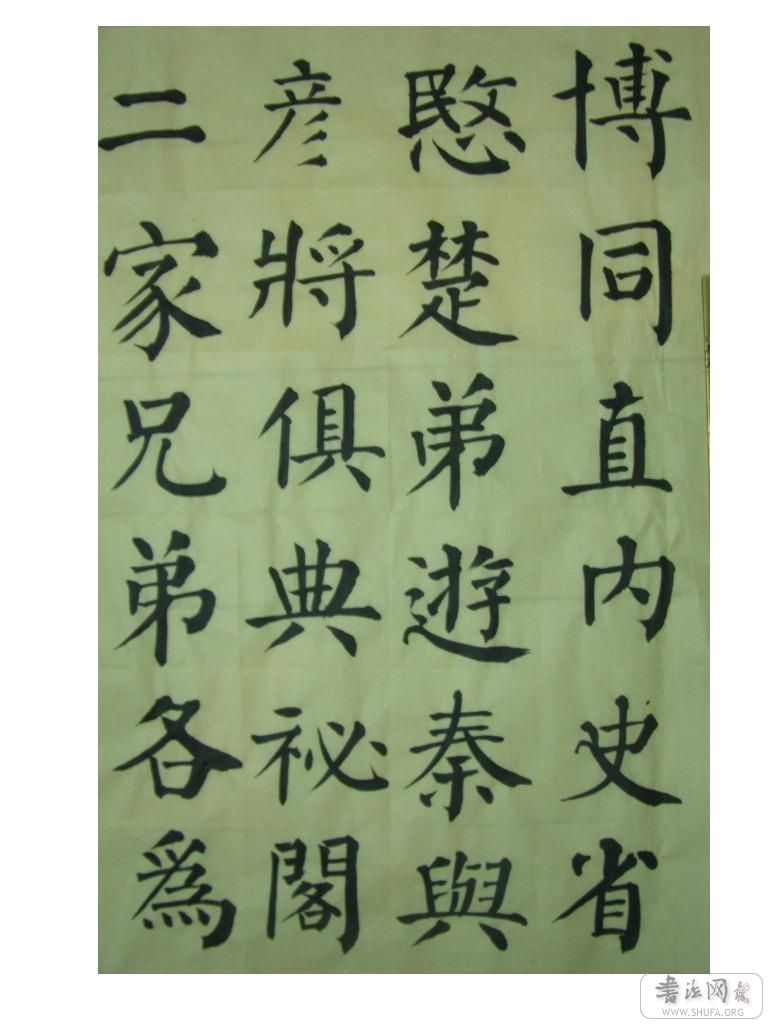 博同直内史省
愍楚弟遊秦與
彦將俱典祕閣
二家兄弟各為
书法网
WWW.SHUFA.ORG